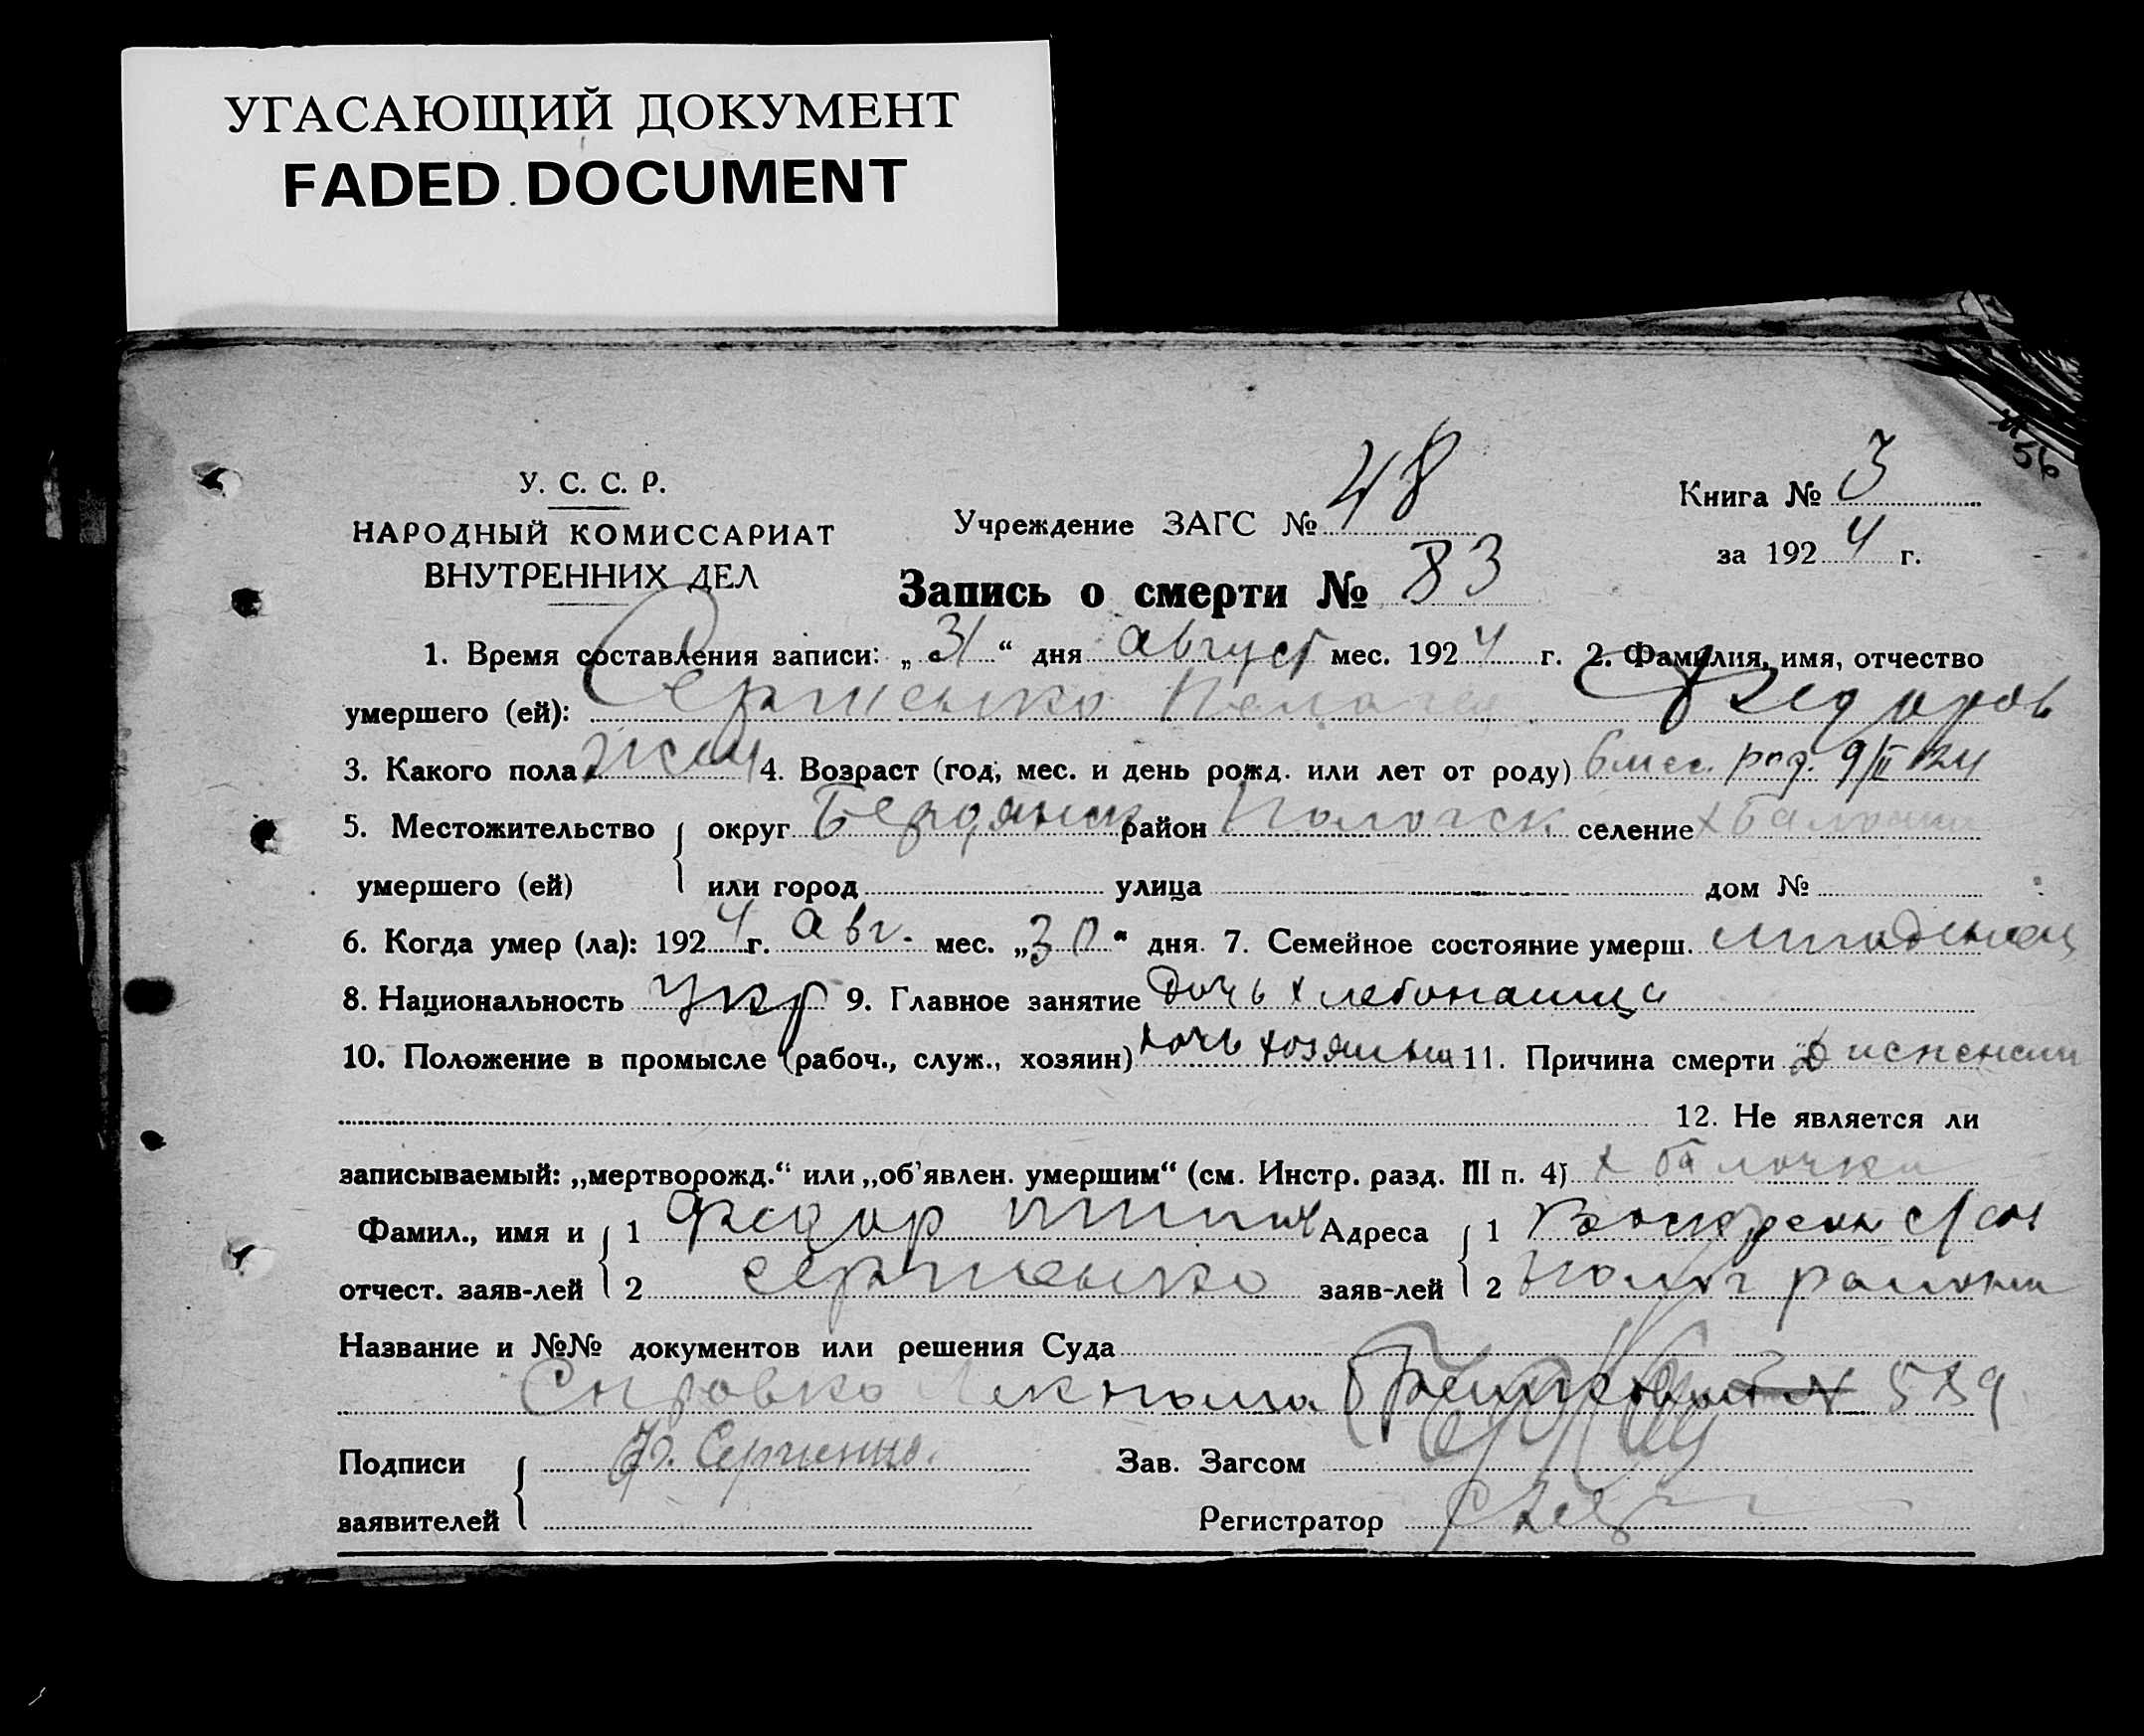 УГАСАЮЩИЙ ДОКУМЕНТ
FADED DOCUMENT
56
У. С. С. Р.
НАРОДНЫЙ КОМИССАРИАТ
ВНУТРЕННИХ ДЕЛ
Учреждение ЗАГС № 48
Книга № 3
за 1924 г.
Запись о смерти № 83
1. Время составления записи: „31“ дня август мес. 1924 г. 2. Фамилия, имя, отчество
умершего (ей): Сергиенко Пелагея Федоров
3. Какого пола жен 4. Возраст (год, мес. и день рожд. или лет от роду) 6 мес. род. 9/II 24
5. Местожительство округ Бердянск район Пологск селение х Балочки
умершего (ей) или город улица дом №
6. Когда умер (ла): 1924 г. авг. мес. „30“ дня. 7. Семейное состояние умерш. младенец
8. Национальность укр 9. Главное занятие дочь хлебопашца
10. Положение в промысле (рабоч., служ., хозяин) дочь хозяина 11. Причина смерти Диспепсии
12. Не является ли
записываемый: „мертворожд.“ или „об'явлен. умершим“ (см. Инстр. разд. III п. 4) х Балочки
Фамил., имя и 1 Федор Адреса 1 Воскресен с/сов
отчест. заяв-лей 2 Сергиенко заяв-лей 2 Полог района
Название и №№ документов или решения Суда
Справка Лекпома № 539
Подписи Ф. Сергиенко. Зав. Загсом
заявителей Регистратор